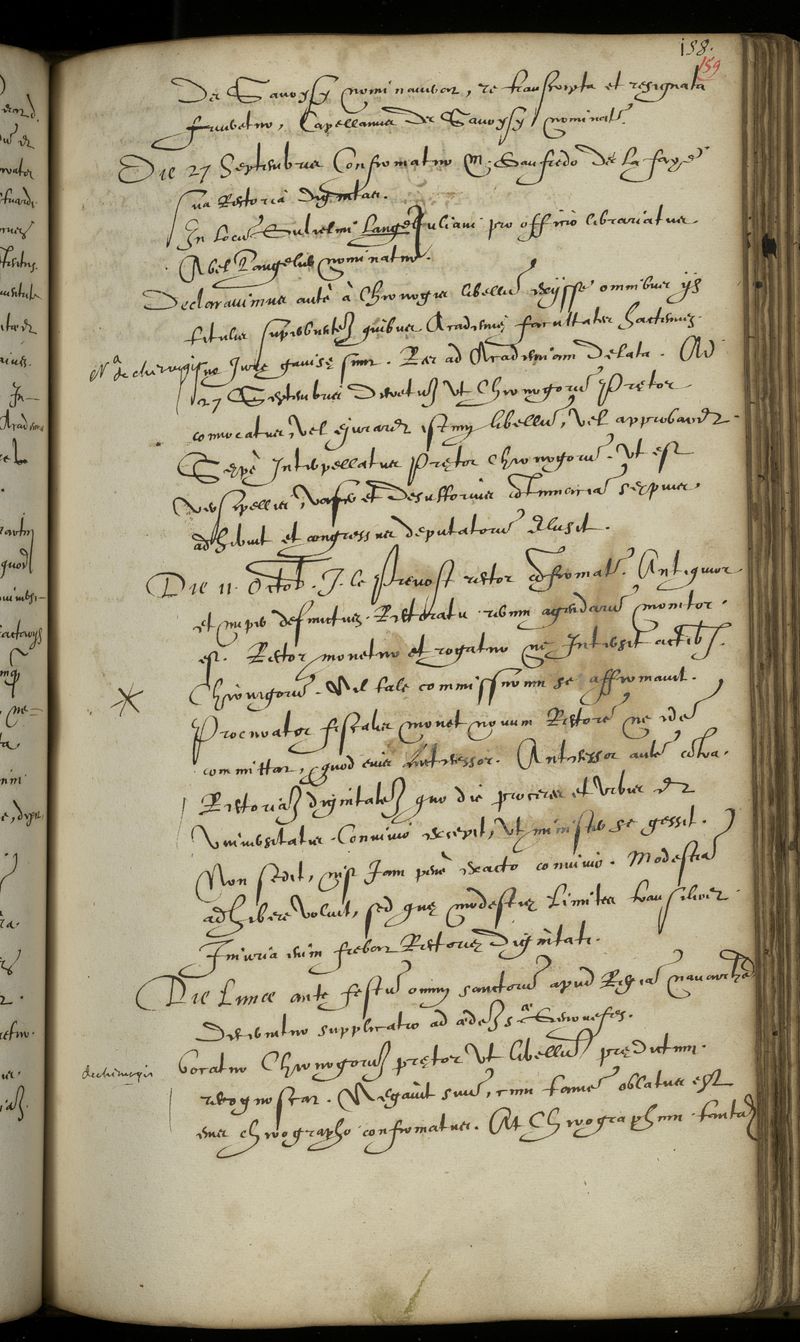 158.
159
De Savoysy nominavitur, re transcripta et resignata
Capellanus De Savoysy nominatr.
Die 27 Septembris Confirmatur M. Gaufredo De la faye
sua Rectoria dignitas.
In Locum Gulielmi Lange Juliani pro officio librariatus
Abel Langelus nominatur.
Declaravimus autem à Chirurgis libellum omnibus iis
titulis quibus Academiae facultates hactenus
Na de chirurgis
Jure gavisae sunt. Res ad Academiam Delata. Ad
27 Septembris Decretum Vt Chirurgorum Praetor
convocatus, Vel ejuraret istum libellum, Vel approbaret
Saepè Interpellatus Praetor Chirurgorum. Vt est
et
adhibuit et congressus deputatorum elusit.
Die 11 Octob. J. le Prevost rector confirmatr. Antiquior
et nuper defunctus Rectoratu rerum agendarum monitor
est. Rector monetur et rogatur ne Intersit actibus
Chirurgorum. Nil tale commissurum se affirmavit.
Procurator fiscalis monet novum Rectorem ne idem
committat, quod eius Antecessor. Antecessor autem contra
Rectoriam dignitatem quo die proceres et Vrbis et
Vniversitatis Convivio excepit, Vt minister se gessit.
Non sedit, nisi Jam penè exacto convivio. Modestiam
adhibere Voluit, sed quae modestiae Limites transiliret
Iniuria enim fiebat Rectoriae Dignitati.
Die Lunae ante festum omnium sanctorum apud Regiam navarrae
Decernitur supplicatio ad aedem sae Genovefes.
de chirurgis
Vocatur Chirurgorum praetor Vt libellum praedictum
recognoscat. Negavit suum, cum tamen oblatus esset
eius chirographo confirmatus. At Chirographum tantum